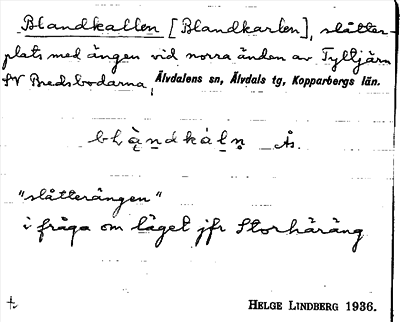 Blandkallen [Blandkarlen], slåtter-
plats med ängen vid norra änden av Tyltjärn
SV Bredsbodarna, Älvdalens sn, Älvdals tg, Kopparbergs län.
Ås.
"slåtterängen"
i fråga om läget jfr Storhäräng
HELGE LINDBERG 1936.